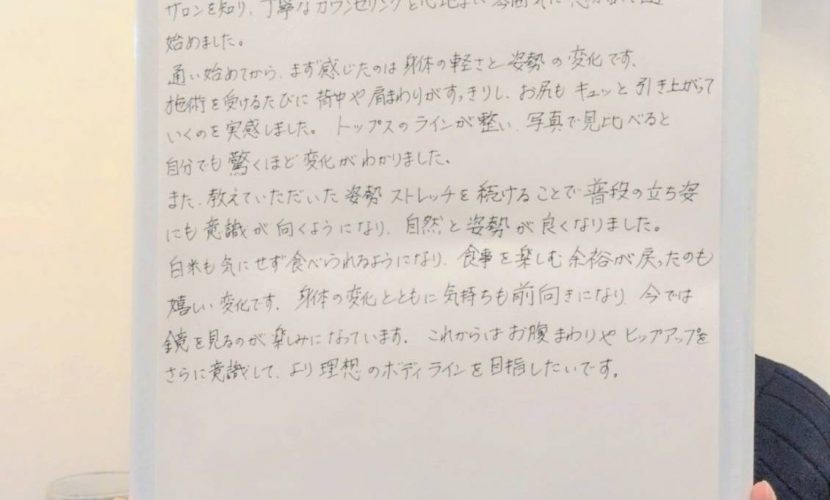 サロンを知り、丁寧なカウンセリングと心地よい雰囲気に
始めました。
通い始めてから、まず感じたのは身体の軽さと姿勢の変化です。
施術を受けるたびに背中や肩まわりがすっきりし、お尻もキュッと引き上がって
いくのを実感しました。トップスのラインが整い、写真で見比べると
自分でも驚くほど変化がわかりました。
また、教えていただいた姿勢ストレッチを続けることで普段の立ち姿
にも意識が向くようになり、自然と姿勢が良くなりました。
白米も気にせず食べられるようになり、食事を楽しむ余裕が戻ったのも
嬉しい変化です。身体の変化とともに気持ちも前向きになり、今では
鏡を見るのが楽しみになっています。これからはお腹まわりやヒップアップを
さらに意識して、より理想のボディラインを目指したいです。